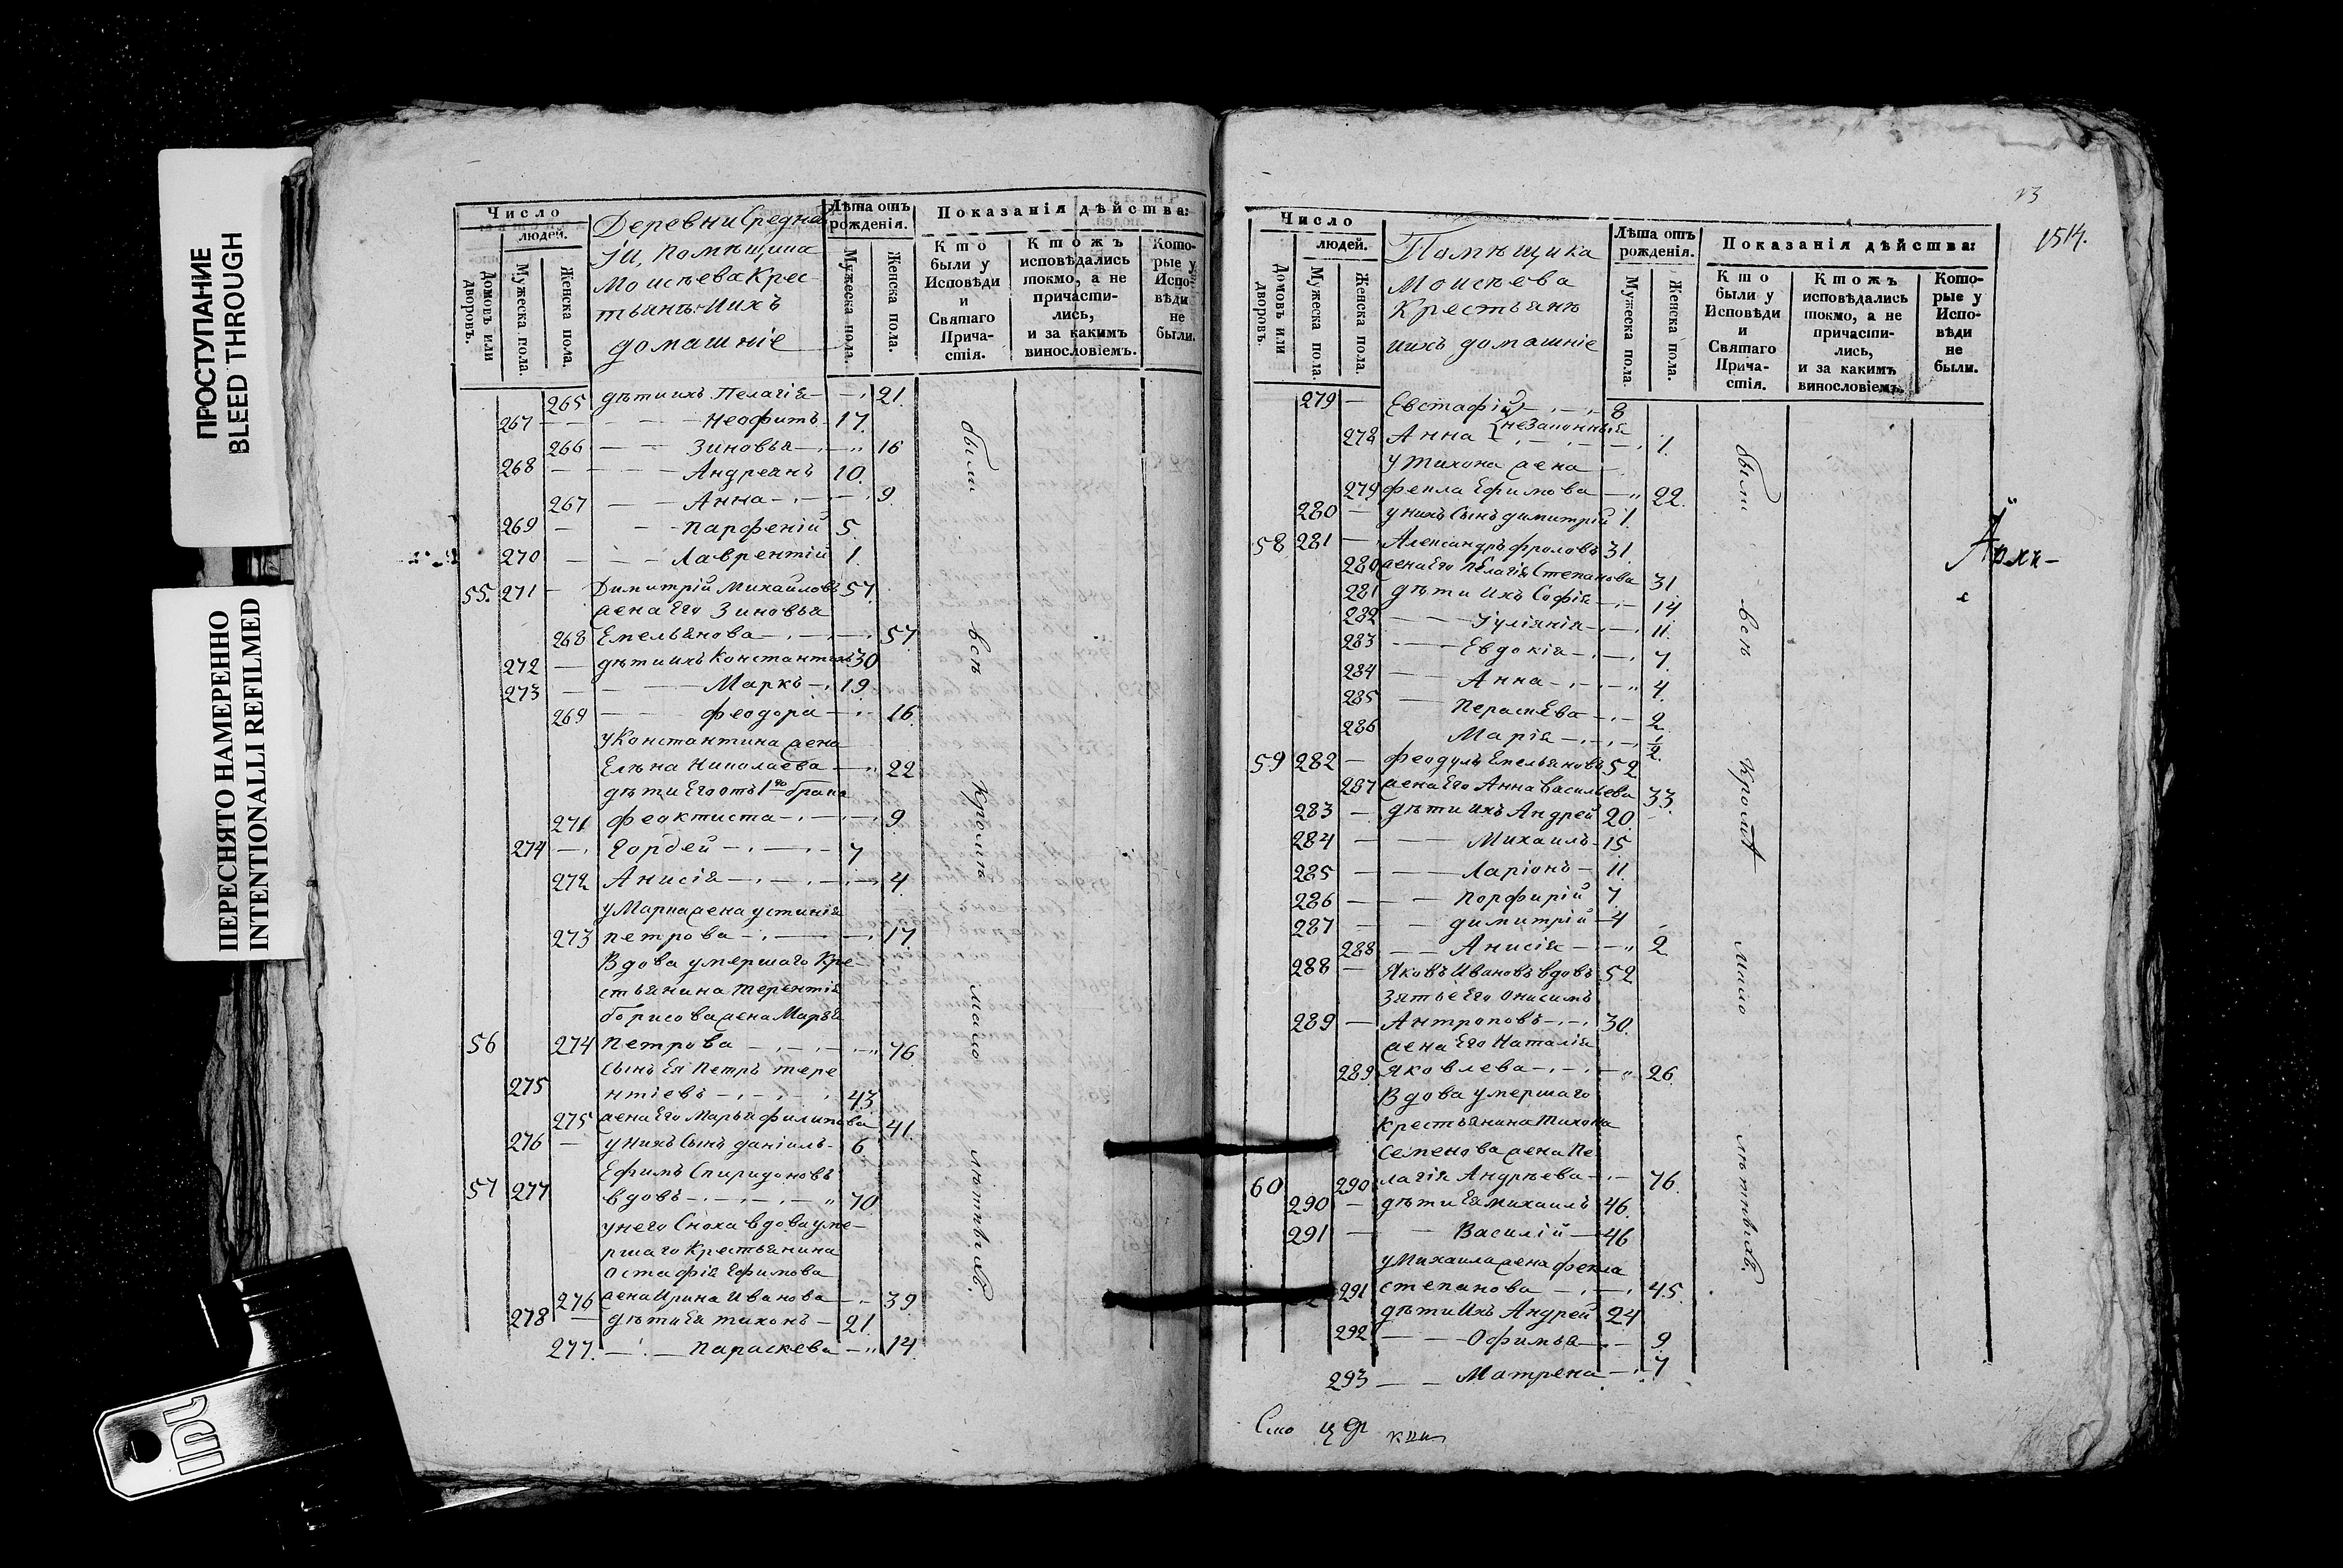 ПРОСТУПАНИЕ
BLEED THROUGH
ПЕРЕСНЯТО НАМЕРЕННО
INTENTIONALLI REFILMED
Число
людей.
Домовъ или дворовъ.
Мужеска пола.
Женска пола.
Деревни Средня
Моисѣева Крес-
тьянъ Ихъ
домашніе
Лѣта отъ рожденія.
Мужеска пола.
Женска пола.
Показанія дѣйства:
Кто были у Исповѣди и Святаго Прича- стія.
Ктожъ исповѣдались токмо, а не причасти- лись, и за какимъ винословіемъ.
Кото- рые у Испо- вѣди не были.
265 дѣти ихъ Пелагія 21
267 Неофитъ 17
266 Зиновья 16
268 Андреянъ 10.
267 Анна 9
269 Парфеній 5.
270 Лаврентій 1.
55. 271 Димитрій Михайловъ 57
жена Его Зиновья
268 Емельянова 57
272 дѣти ихъ Константинъ 30
273 Маркъ 19
269 феодора 16
у Константина жена
Елѣна Николаева 22
дѣти Его отъ 1го брака
271 феоктиста 9
274 Гордей 7
272 Анисія 4
у Марка жена устинія
273 петрова 17
Вдова умершаго Кре-
стьянина терентія
борисова жена Марья
56 274 Петрова 76
сынъ Ея Петръ тере
275 нтіевъ 43
275 жена Его Марья филипова 41
276 у нихъ Сынъ даніилъ 6
Ефимъ Спиридоновъ
57 277 вдовъ 70
у него Сноха вдова уме-
ршаго Крестьянина
Остафія Ефимова
276 жена Ирина Иванова 39
278 дѣти Ея тихонъ 21
277. Параскева 14
были всѣ кромѣ мало лѣтныхъ.
1514.
Число
людей.
Домовъ или дворовъ.
Мужеска пола.
Женска пола.
Помѣщика
Моисѣева
Крестьянъ
ихъ домашніе
Лѣта отъ рожденія.
Мужеска пола.
Женска пола.
Показанія дѣйства:
Кто были у Исповѣди и Святаго Прича- стія.
Ктожъ исповѣдались токмо, а не причасти- лись, и за какимъ винословіемъ.
Кото- рые у Испо- вѣди не были.
279 Евстафій 8
незаконныя
278 Анна 1.
у тихона жена
279 фекла Ефимова 22
280 у нихъ Сынъ димитрій 1.
58 281 Александръ фроловъ 31
280 жена Его Пелагія Степанова 31
281 дѣти Ихъ Софія 14
282 Іуліянія 11.
283 Евдокія 7
284 Анна 4
285 Параскева 2
286 Марія 1/2.
59 282 феодулъ Емельяновъ 52
287 жена Его Анна Васильева 33
283 дѣти ихъ Андрей 20
284 Михаилъ 15
285 Ларіонъ 11
286 Порфирій 7
287 димитрій 4
288 Анисія 2
288 Яковъ Ивановъ вдовъ 52
Зятье Его онисимъ
289 Антроповъ 30
жена Его Наталія
289 Яковлева 26
Вдова умершаго
крестьянина тихона
Семенова жена Пе
60 290 лагія Андрѣева 76
290 дѣти Ея михаилъ 46
291 Василій 46
у Михаила жена фекла
291 степанова 45
дѣти Ихъ Андрей 24
292 Офимья 9
293 Матрена 7
были всѣ Кромѣ мало лѣтныхъ.